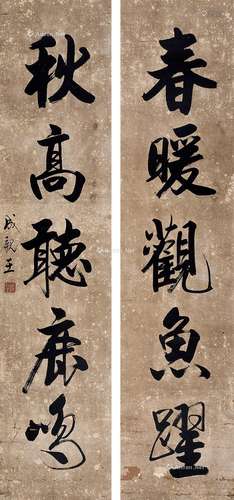 春暖觀魚躍
秋高聽鹿鳴
成親王